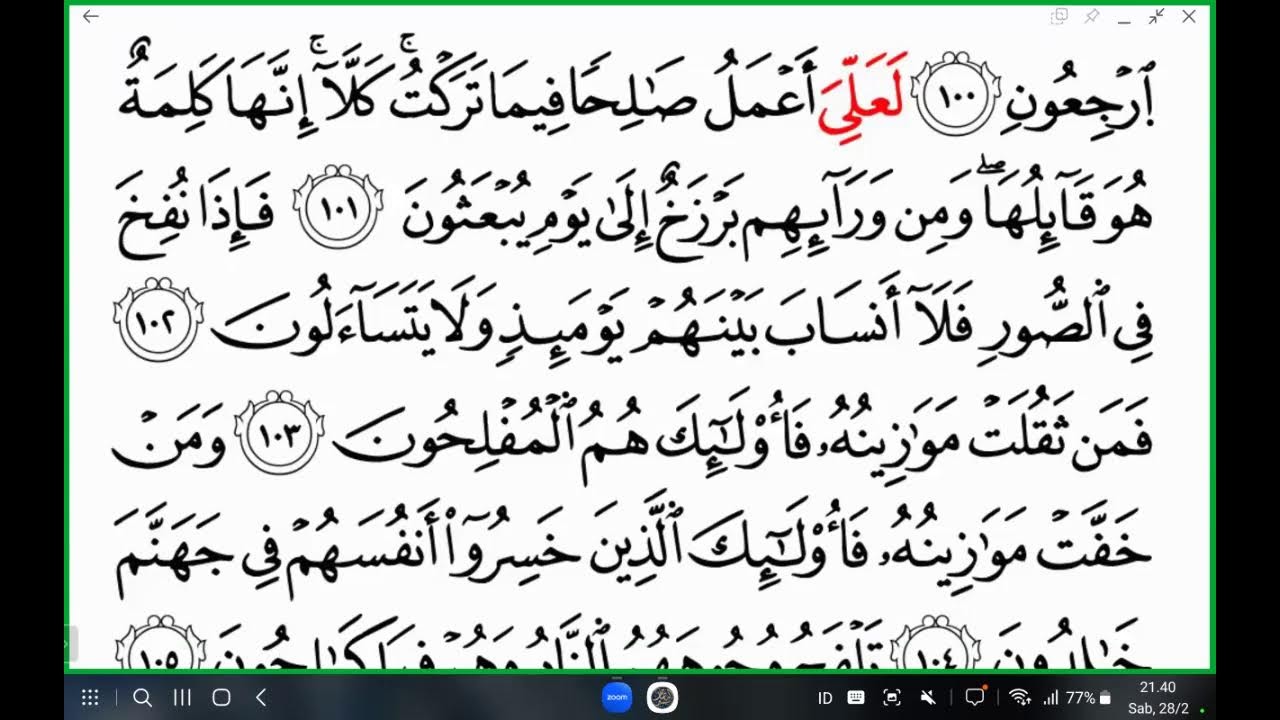 ٱرۡجِعُونِ ١٠٠ لَعَلِّيَ أَعۡمَلُ صَٰلِحٗا فِيمَا تَرَكۡتُۚ كَلَّآۚ إِنَّهَا كَلِمَةٌ
هُوَ قَآئِلُهَاۖ وَمِن وَرَآئِهِم بَرۡزَخٌ إِلَىٰ يَوۡمِ يُبۡعَثُونَ ١٠١ فَإِذَا نُفِخَ
فِي ٱلصُّورِ فَلَآ أَنسَابَ بَيۡنَهُمۡ يَوۡمَئِذٖ وَلَا يَتَسَآءَلُونَ ١٠٢
فَمَن ثَقُلَتۡ مَوَٰزِينُهُۥ فَأُوْلَٰٓئِكَ هُمُ ٱلۡمُفۡلِحُونَ ١٠٣ وَمَنۡ
خَفَّتۡ مَوَٰزِينُهُۥ فَأُوْلَٰٓئِكَ ٱلَّذِينَ خَسِرُوٓاْ أَنفُسَهُمۡ فِي جَهَنَّمَ
خَٰلِدُونَ ١٠٤ تَلۡفَحُ وُجُوهَهُمُ ٱلنَّارُ وَهُمۡ فِيهَا كَٰلِحُونَ ١٠٥
zoom ID 77% 21.40
Sab, 28/2